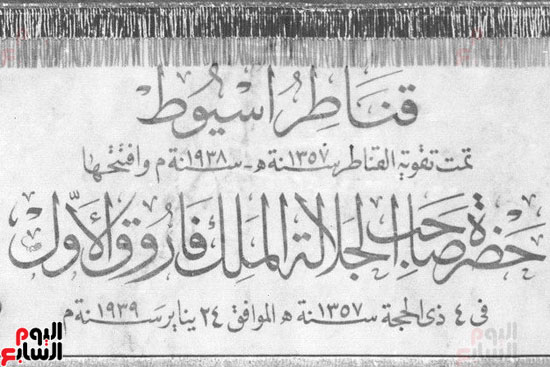 قناطر اسيوط
تمت تقوية القناطر سنة ١٣٥٧ ھ - سنة ١٩٣٨ م وافتتحها
حضرة صاحب الجلالة الملك فاروق الأول
فى ٤ ذى الحجة سنة ١٣٥٧ ھ الموافق ٢٤ يناير سنة ١٩٣٩ م
اليوم السابع
اليوم السابع